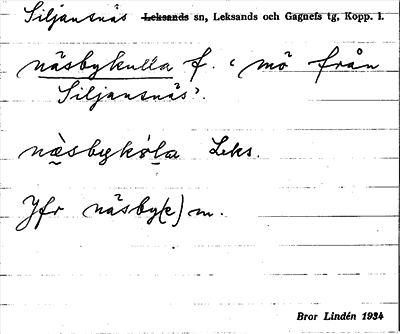 Siljansnäs Leksands sn, Leksands och Gagnefs tg, Kopp. l.
näsbykulla f. ‘mö från
Siljansnäs’.
nä̀sbykóla Leks.
Jfr näsby(e) m.
Bror Lindén 1934